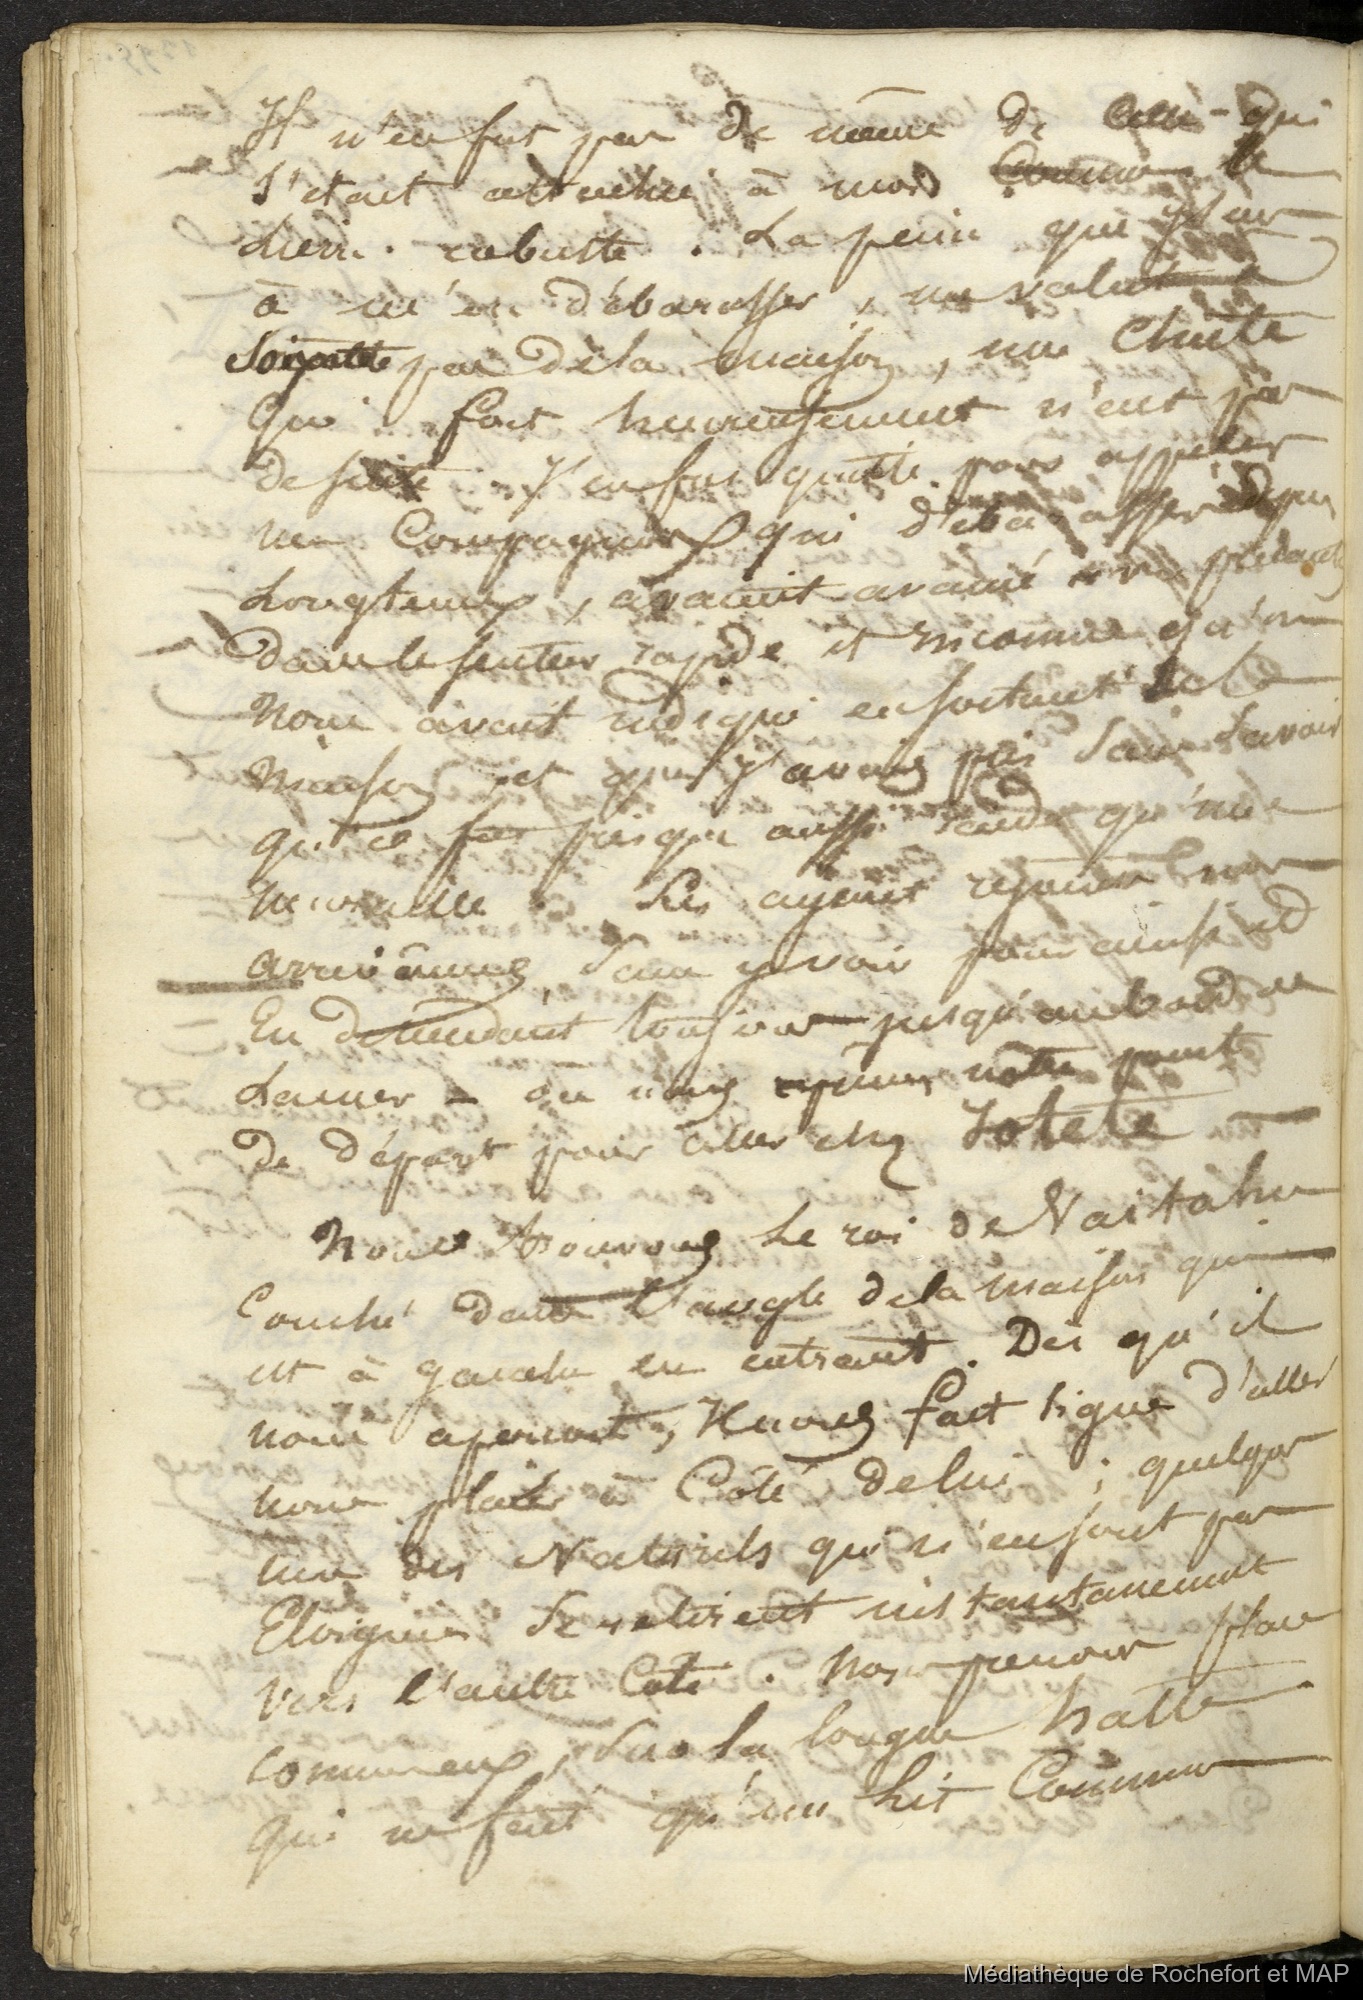 Il n'en fut pas de même de celui qui
s'etait attaché à moi comme le
Lierre robuste. La peine que j'eus
à m'en débarasser, me valut
par dela maison, une chute
qui fort heureusement n'eut pas
de suite. J'en fus quitte pour appeler
mes Compagnons qui débarassés depuis
Longtemps, avaient avancé
dans le sentier rapide et inconnu qu'on
nous avait indiqué en sortant de la
maison et que j'avais pris sans savoir
qu'il ce fut presque aussi raide qu'une
muraille. Les ayant rejoints nous
arrivâmes, sans y voir pour ainsi
En descendant toujours jusqu'au bord de
La mer – où nous reprîmes notre point
De départ pour aller chez Iotété —
Nous trouvons Le roi de Vaitahu
Couché dans l'angle dela maison qui
est à gauche en entrant. Dès qu'il
nous aperçoit, Il nous fait signe d'aller
nous placer à Côté de lui ; quelques
uns des Naturels qui n'en sont pas
Eloignés Se retirent instantanement
vers l'autre Coté. Nous prenons place
comme eux, sur la longue natte
qui ne fait qu'un Lit Commun